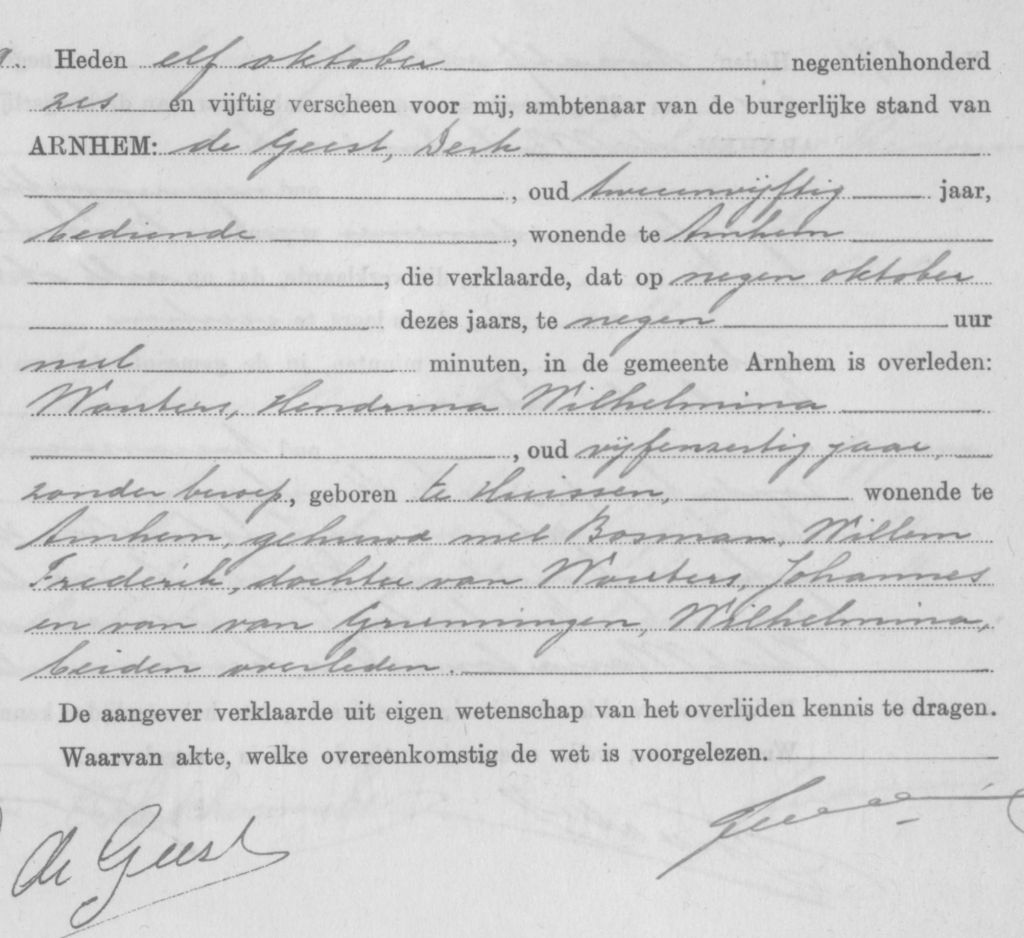 Heden elf oktober negentienhonderd
zes en vijftig verscheen voor mij, ambtenaar van de burgerlijke stand van
ARNHEM: de Geest, Derk
, oud tweeenvijftig jaar,
bediende , wonende te Arnhem
, die verklaarde, dat op negen oktober
dezes jaars, te negen uur
nul minuten, in de gemeente Arnhem is overleden:
Wouters, Hendrina Wilhelmina
, oud vijfenzestig jaar,
zonder beroep, geboren te Huissen, wonende te
Arnhem, gehuwd met Bosman, Willem
Frederik, dochter van Wouters, Johannes
en van van Gruenningen, Wilhelmina,
beiden overleden.
De aangever verklaarde uit eigen wetenschap van het overlijden kennis te dragen.
Waarvan akte, welke overeenkomstig de wet is voorgelezen.
de Geest